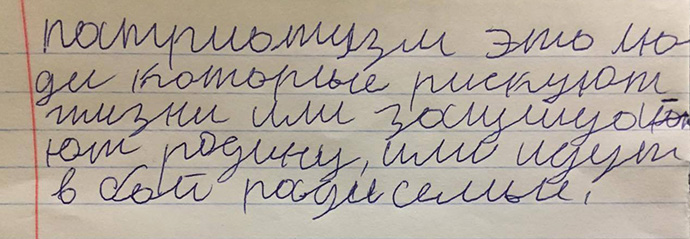 патриотизм это лю
ди которые рискуют
жизни или защищуа
ют родину, или идут
в бой ради семьи.